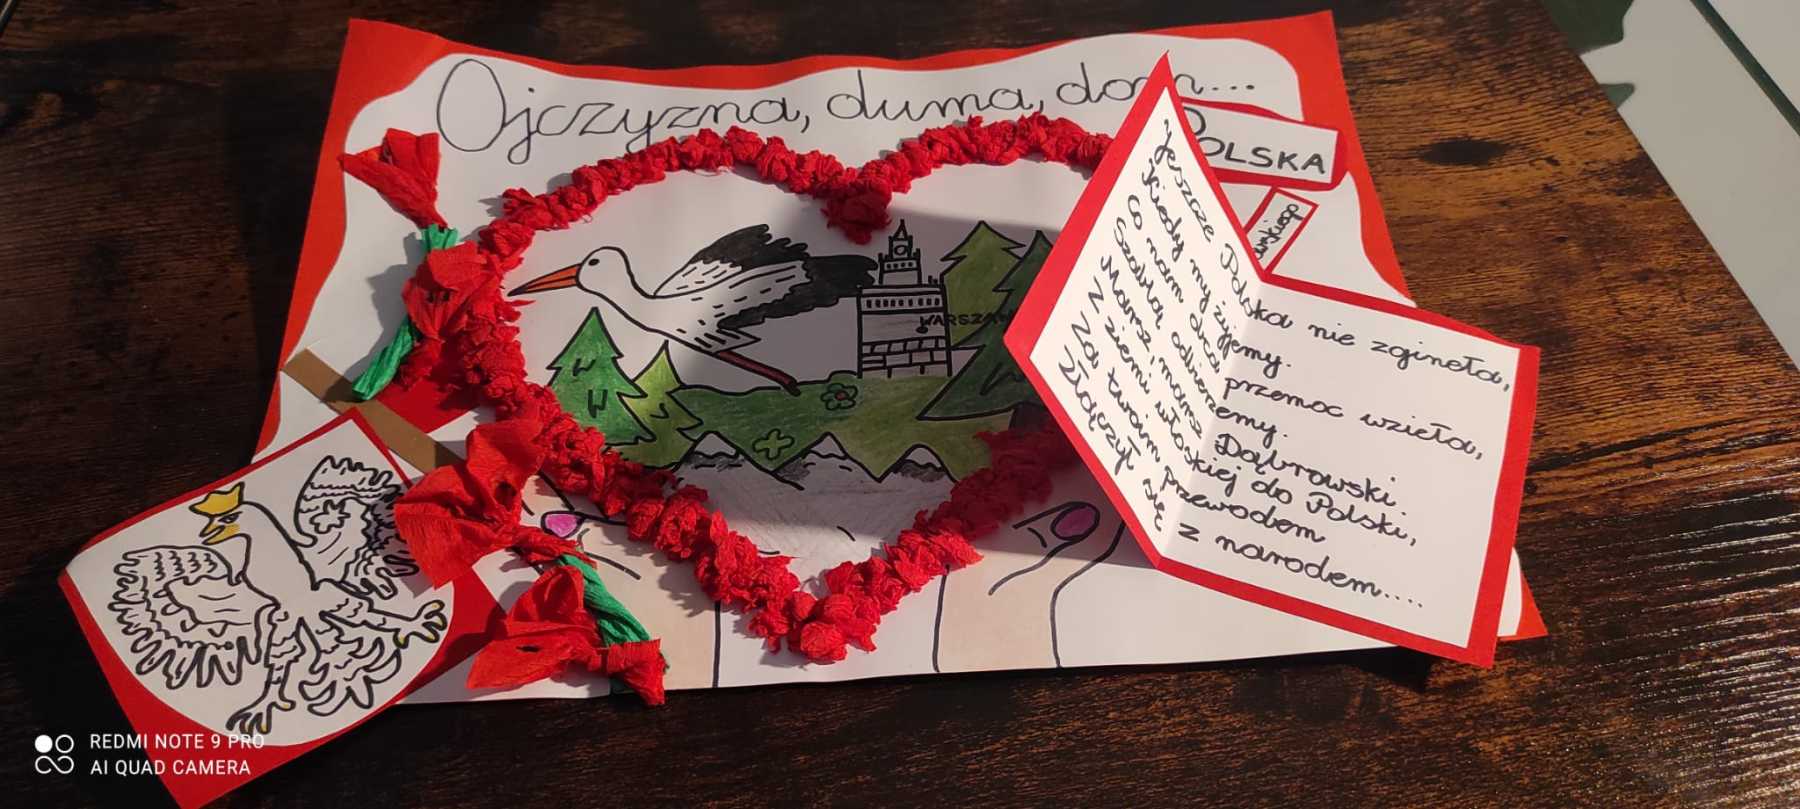 Ojczyzna, duma, dom...
POLSKA
WARSZAWA
Jeszcze Polska nie zgineła,
Kiedy my żyjemy.
Co nam obca przemoc wzieła,
Szablą odbierzemy.
Marsz, marsz Dąbrowski.
Z ziemi włoskiej do Polski,
Za twoim przewodem
Złączył się z narodem....
REDMI NOTE 9 PRO
AI QUAD CAMERA